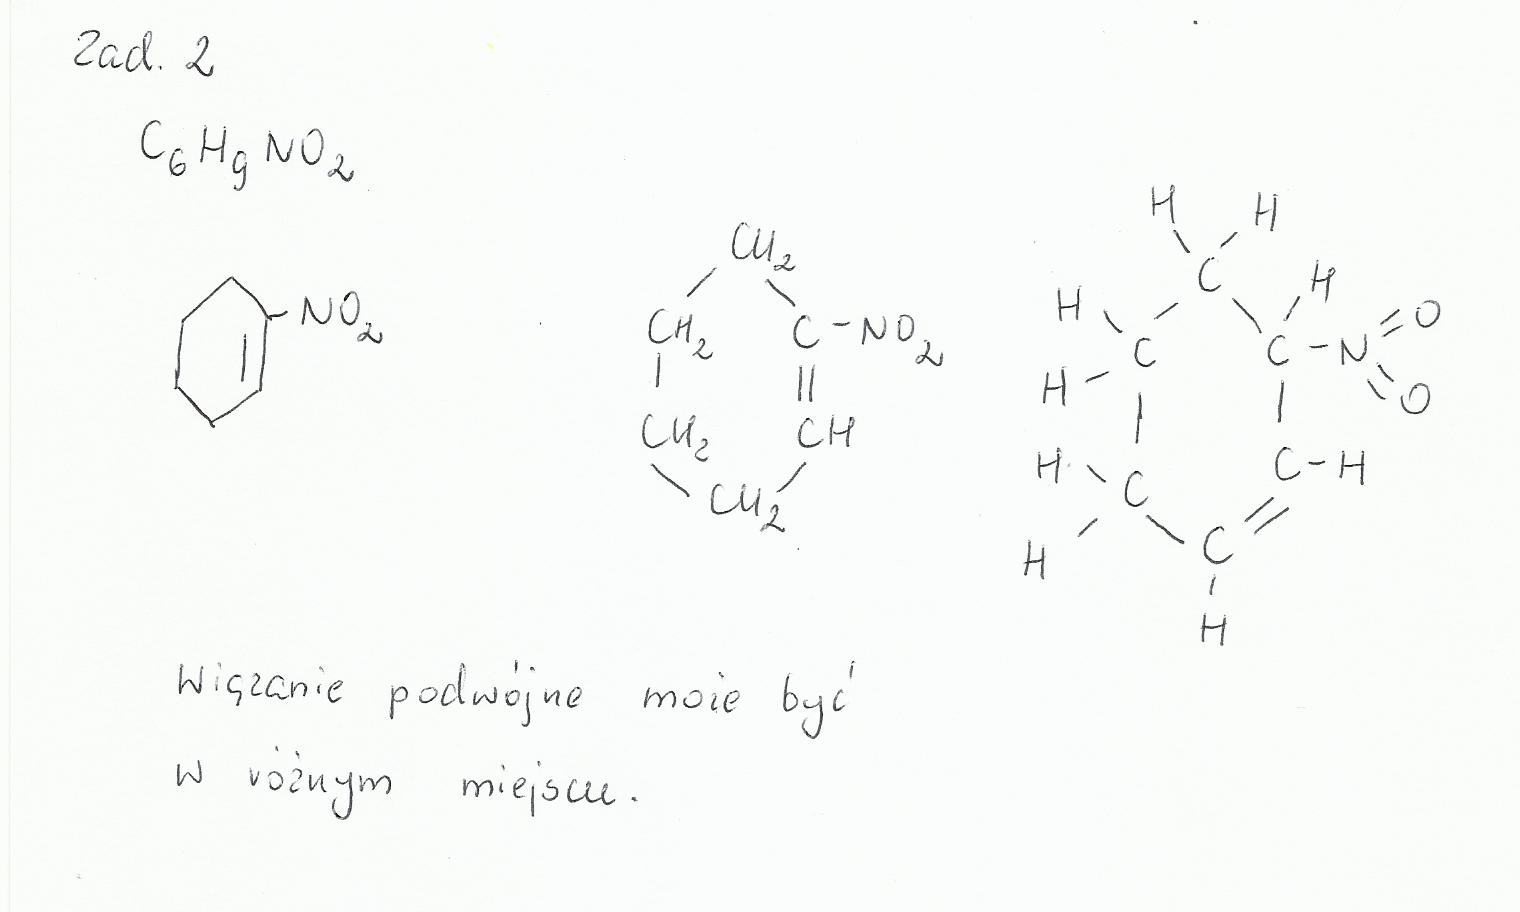 Zad. 2
C6H9NO2
NO2
CH2
CH2
C-NO2
CH2
CH
CH2
H H
C
H
H
C
C-N
O
O
H
H
C
C-H
H
C
H
Wiązanie podwójne może być
w różnym miejscu.